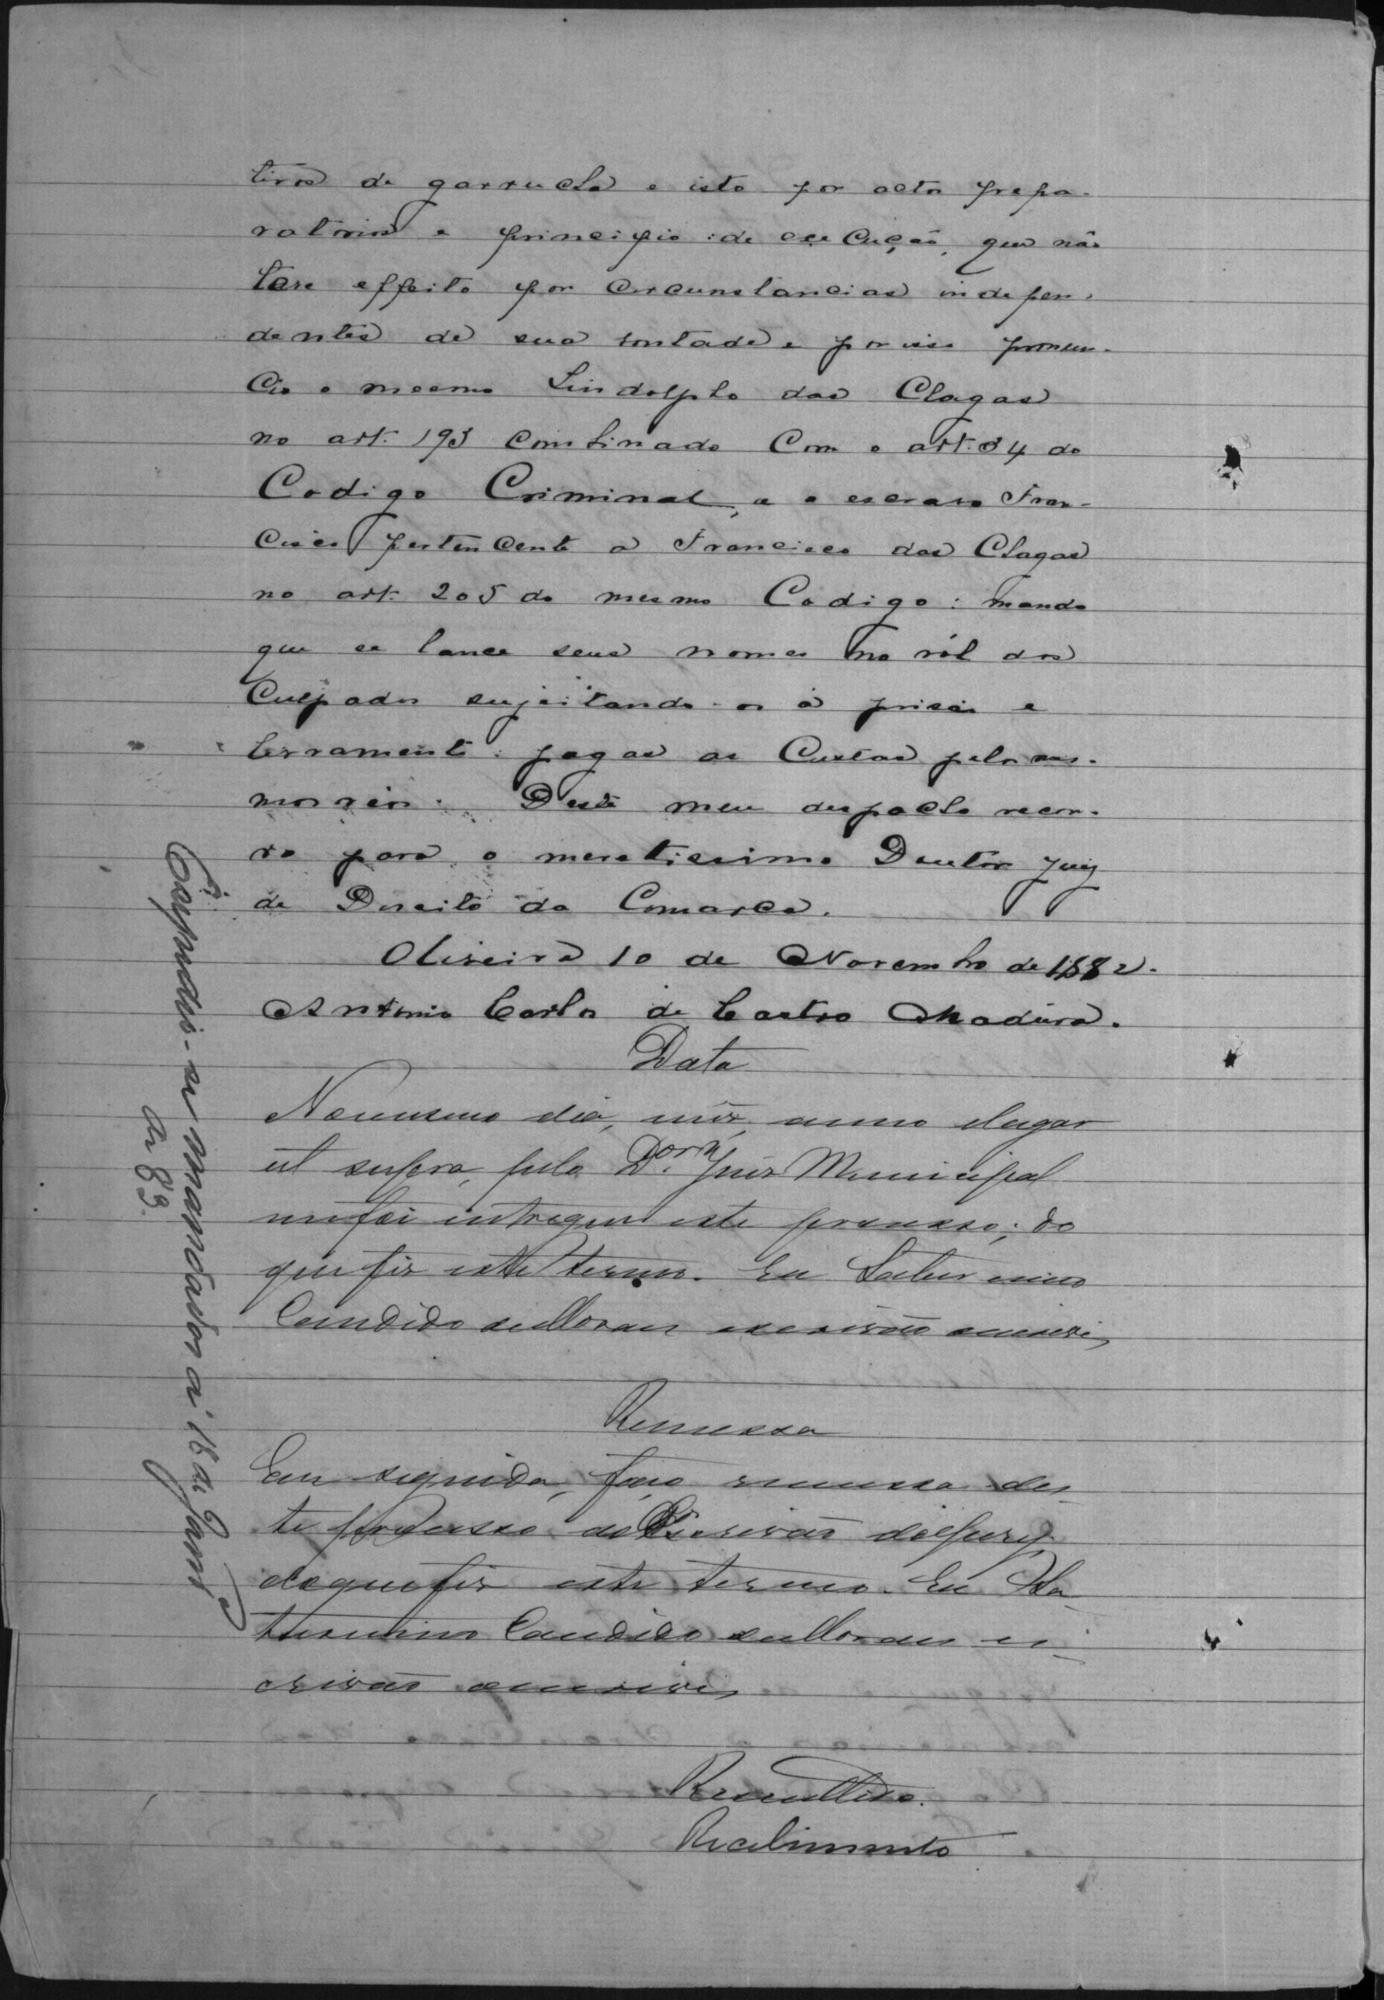 tiros de garrucha e isto por actos prepa-
ratorios e principio de execução, que não
teve effeito por circunstancias indepen-
dentes de sua vontade e por isso pronun-
cio o mesmo Lindolpho das Chagas
no art. 193 combinado com o art. 34 do
Codigo Criminal, e o escravo Fran-
cisco pertencente a Francisco das Chagas
no art. 205 do mesmo Codigo: mando
que se lance seus nomes no ról dos
Culpados sujeitando-os á prisão e
livramento: pagas as Custas pelos mes-
mos réos. Deste meu despacho recor-
ro para o meretissimo Doutor Juiz
de Direito da Comarca.
Oliveira 10 de Novembro de 1882.
Antonio Carlos de Castro Madeira.
Data
No mesmo dia, mez, anno elugar
ut supra, pelo D.or Juiz Municipal
mefoi entregue este processo; do
que fiz este termo. Eu Saturnino
Candido de Moraes escrivão oescrevi,
Remessa
Em seguida, faço remessa des-
te processo ao Escrivão doJury
doquefiz este termo. Eu Sa-
turnino Candido de Moraes es-
crivão oescrevi,
Remettido.
Recebimento
Expedio-se mandados a 18 de Janr.o
de 83.